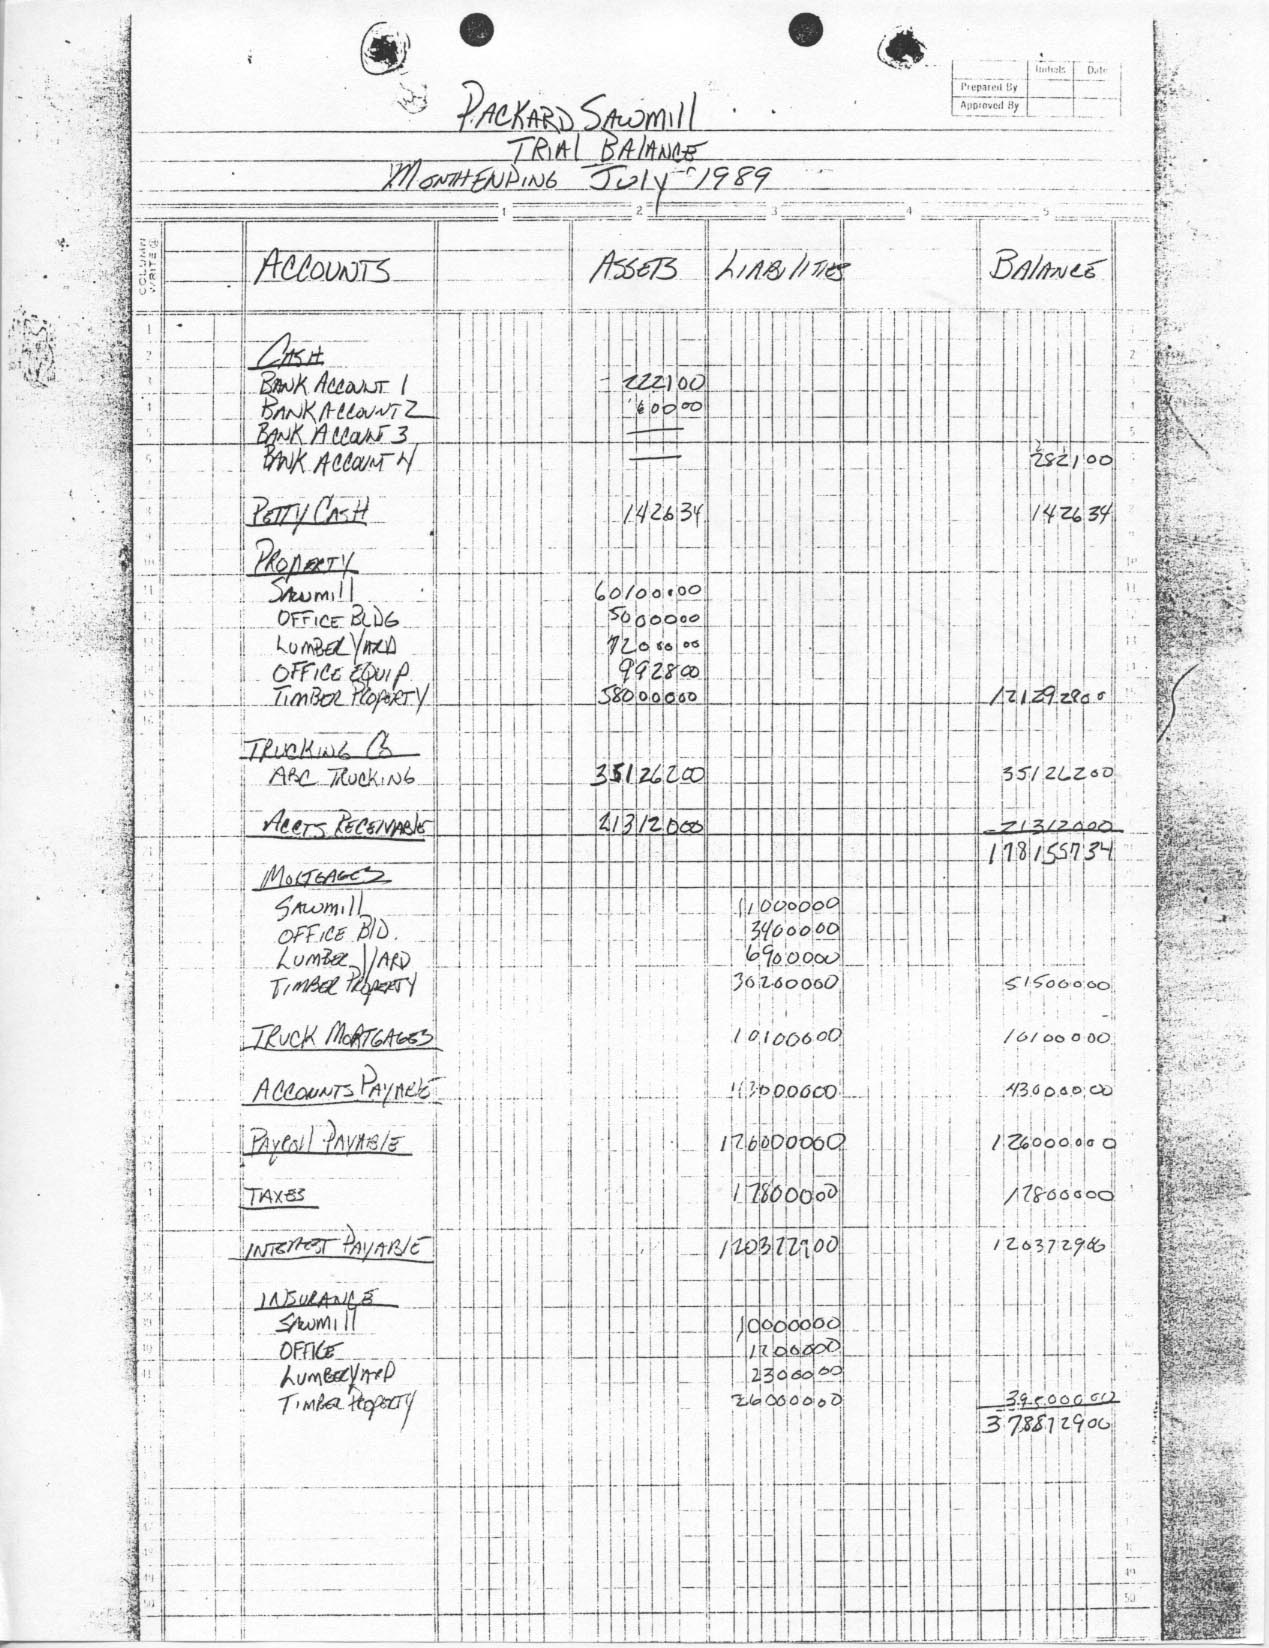 Initials Date
Prepared By
Approved By
PACKARD SAWMILL
TRIAL BALANCE
MONTH ENDING July 1989
1 2 3 4 5
COLUMN WRITE
ACCOUNTS ASSETS LIABILITIES BALANCE
CASH
BANK ACCOUNT 1 222100
BANK ACCOUNT 2 60000
BANK ACCOUNT 3 —
BANK ACCOUNT 4 — 282100
PETTY CASH 142634 142634
PROPERTY
SAWMILL 60100000
OFFICE BLDG 5000000
LUMBER YARD 7200000
OFFICE EQUIP 992800
TIMBER PROPERTY 58000000 121292800
TRUCKING CO
ABC TRUCKING 35126200 35126200
ACCTS RECEIVABLE 21312000 21312000
178155734
MORTGAGES
SAWMILL 11000000
OFFICE BLD. 3400000
LUMBER YARD 6900000
TIMBER PROPERTY 30200000 51500000
TRUCK MORTGAGES 10100000 10100000
ACCOUNTS PAYABLE 43000000 43000000
PAYROLL PAYABLE 126000000 126000000
TAXES 17800000 17800000
INTEREST PAYABLE 120372900 120372900
INSURANCE
SAWMILL 10000000
OFFICE 1200000
LUMBERYARD 2300000
TIMBER PROPERTY 26000000
378872900